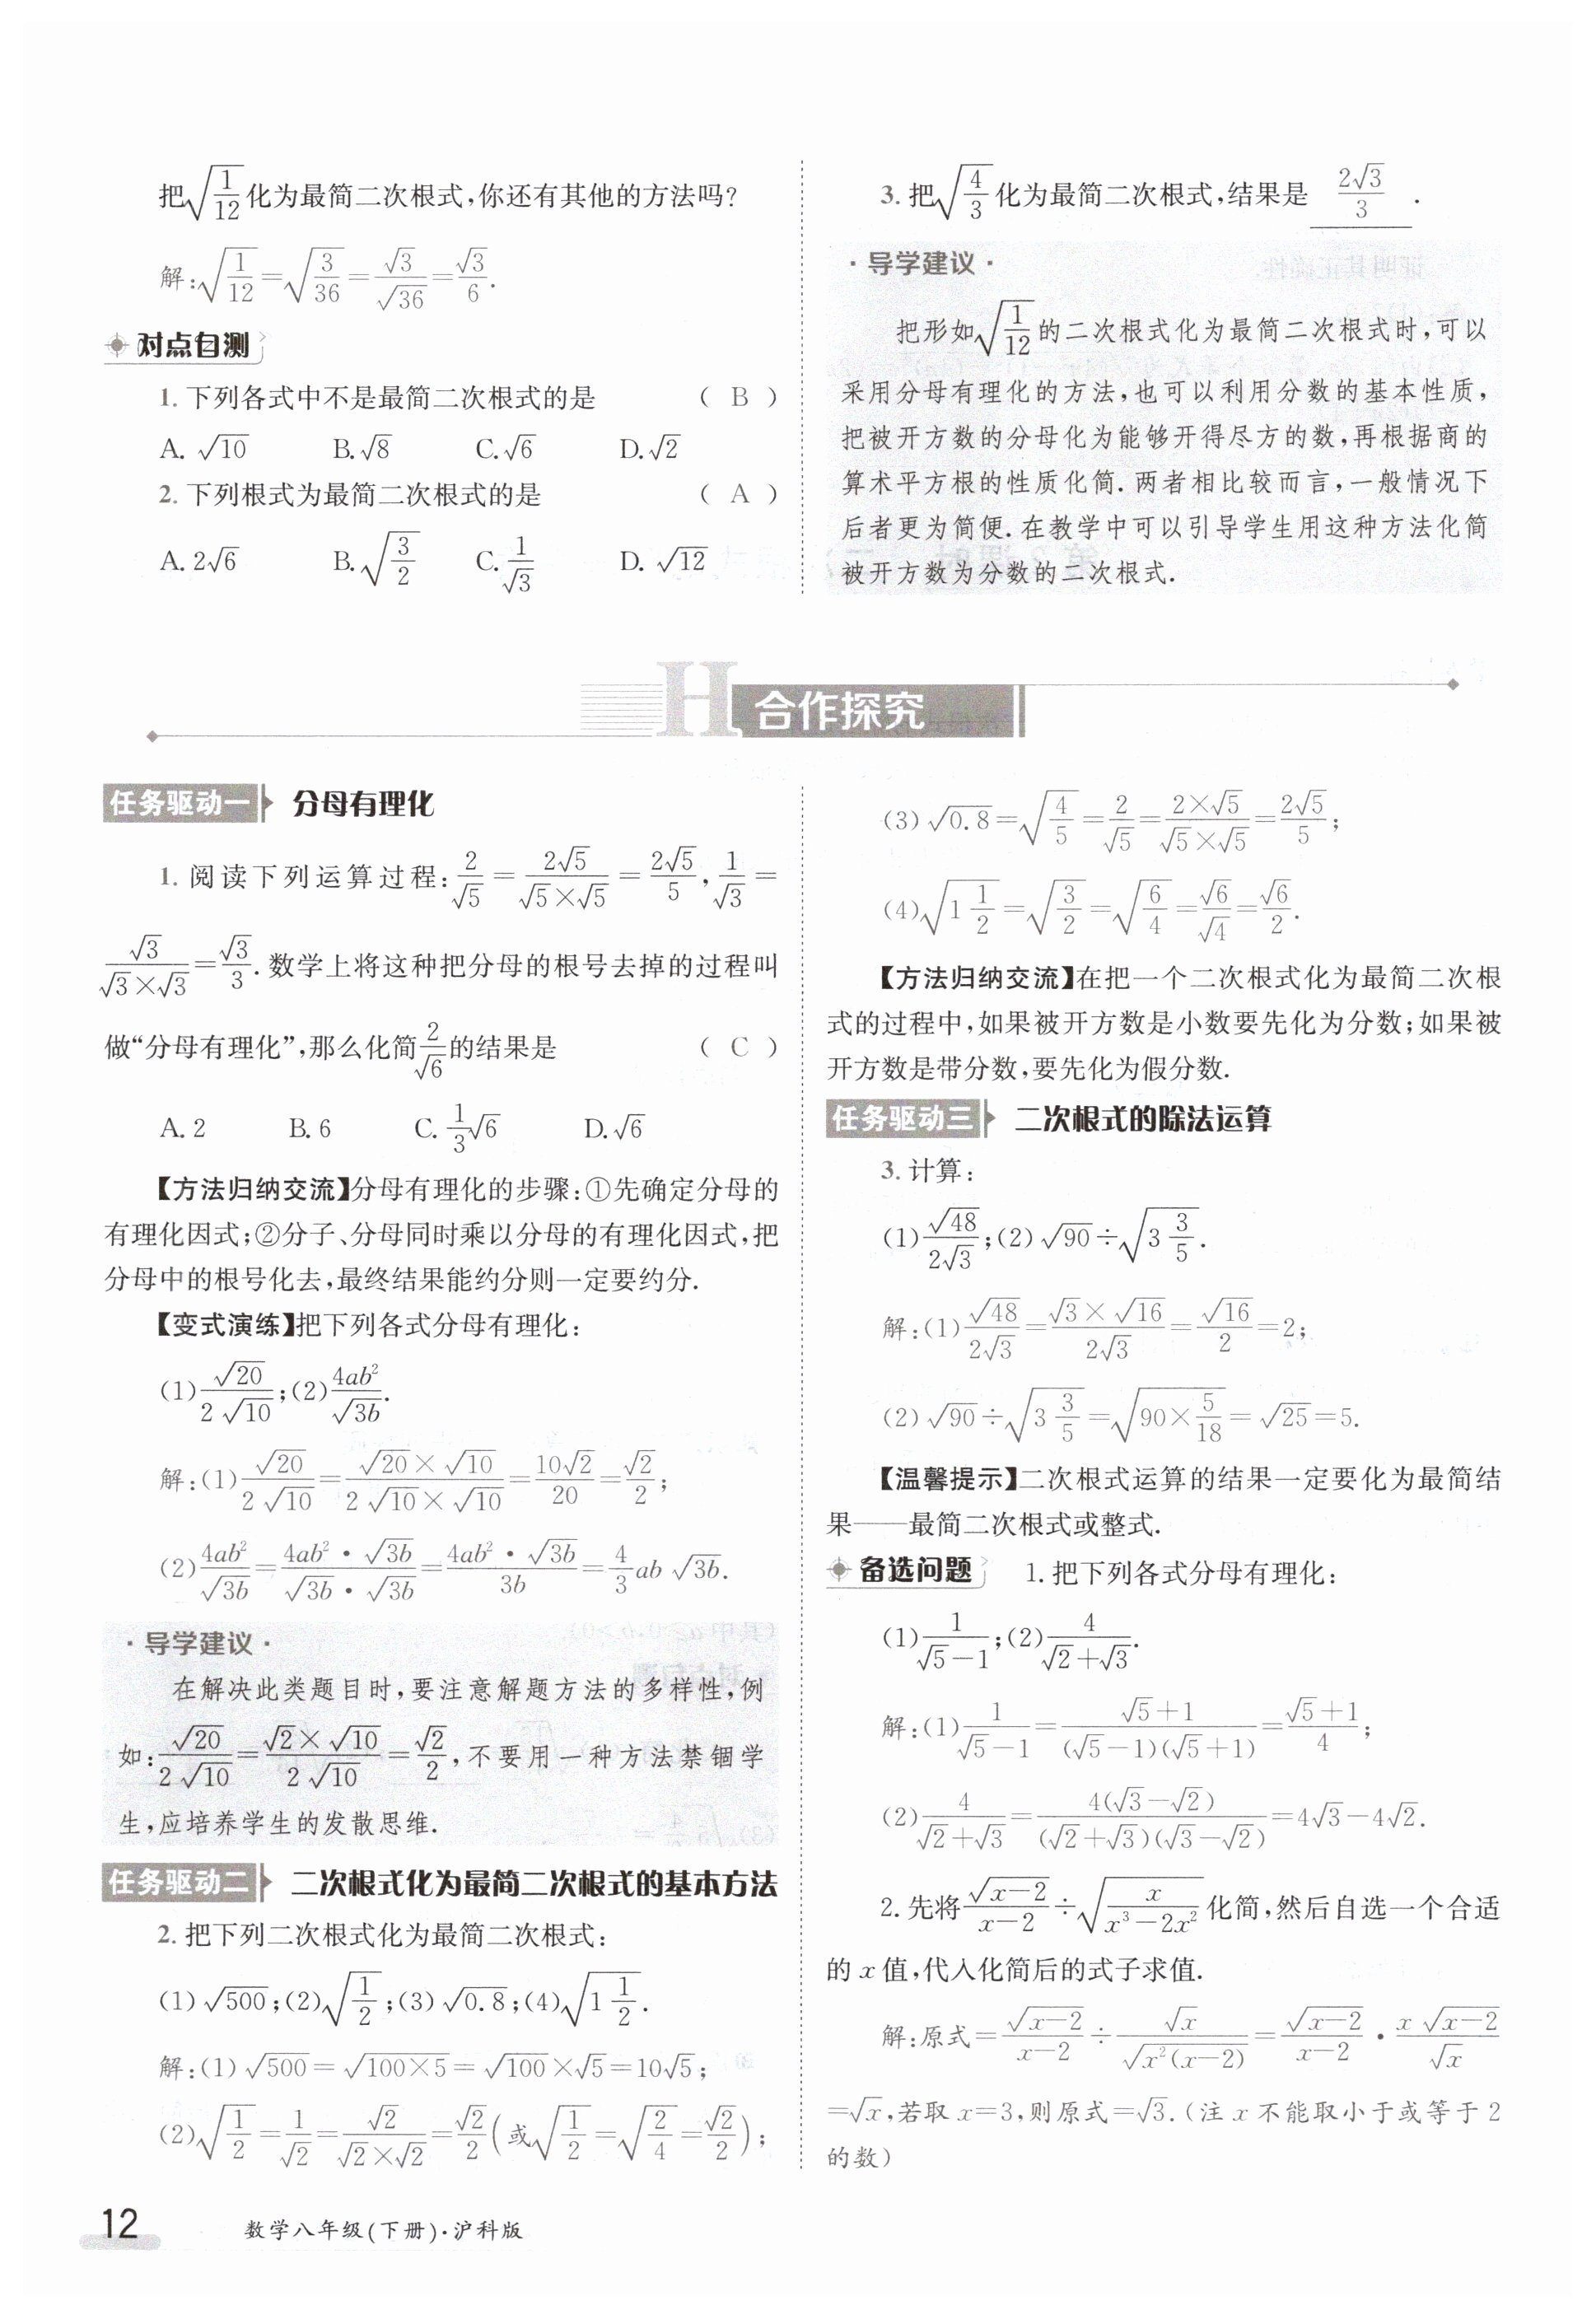 把√(1/12)化为最简二次根式,你还有其他的方法吗?
解:√(1/12)=√(3/36)=√3/√36=√3/6.
对点自测
1. 下列各式中不是最简二次根式的是 ( B )
A. √10 B. √8 C. √6 D. √2
2. 下列根式为最简二次根式的是 ( A )
A. 2√6 B. √(3/2) C. 1/√3 D. √12
3. 把√(4/3)化为最简二次根式,结果是 2√3/3 .
·导学建议·
把形如√(1/12)的二次根式化为最简二次根式时,可以
采用分母有理化的方法,也可以利用分数的基本性质,
把被开方数的分母化为能够开得尽方的数,再根据商的
算术平方根的性质化简. 两者相比较而言,一般情况下
后者更为简便. 在教学中可以引导学生用这种方法化简
被开方数为分数的二次根式.
H 合作探究
任务驱动一 分母有理化
1. 阅读下列运算过程:2/√5=2√5/(√5×√5)=2√5/5,1/√3=
√3/(√3×√3)=√3/3. 数学上将这种把分母的根号去掉的过程叫
做“分母有理化”,那么化简2/√6的结果是 ( C )
A. 2 B. 6 C. (1/3)√6 D. √6
【方法归纳交流】分母有理化的步骤:①先确定分母的
有理化因式;②分子、分母同时乘以分母的有理化因式,把
分母中的根号化去,最终结果能约分则一定要约分.
【变式演练】把下列各式分母有理化:
(1)√20/(2√10);(2)4ab²/√3b.
解:(1)√20/(2√10)=(√20×√10)/(2√10×√10)=10√2/20=√2/2;
(2)4ab²/√3b=(4ab²·√3b)/(√3b·√3b)=(4ab²·√3b)/3b=(4/3)ab√3b.
·导学建议·
在解决此类题目时,要注意解题方法的多样性,例
如:√20/(2√10)=(√2×√10)/(2√10)=√2/2,不要用一种方法禁锢学
生,应培养学生的发散思维.
任务驱动二 二次根式化为最简二次根式的基本方法
2. 把下列二次根式化为最简二次根式:
(1)√500;(2)√(1/2);(3)√0.8;(4)√(1 1/2).
解:(1)√500=√(100×5)=√100×√5=10√5;
(2)√(1/2)=1/√2=√2/(√2×√2)=√2/2(或√(1/2)=√(2/4)=√2/2);
(3)√0.8=√(4/5)=2/√5=(2×√5)/(√5×√5)=2√5/5;
(4)√(1 1/2)=√(3/2)=√(6/4)=√6/√4=√6/2.
【方法归纳交流】在把一个二次根式化为最简二次根
式的过程中,如果被开方数是小数要先化为分数;如果被
开方数是带分数,要先化为假分数.
任务驱动三 二次根式的除法运算
3. 计算:
(1)√48/(2√3);(2)√90÷√(3 3/5).
解:(1)√48/(2√3)=(√3×√16)/(2√3)=√16/2=2;
(2)√90÷√(3 3/5)=√(90×5/18)=√25=5.
【温馨提示】二次根式运算的结果一定要化为最简结
果——最简二次根式或整式.
备选问题 1. 把下列各式分母有理化:
(1)1/(√5-1);(2)4/(√2+√3).
解:(1)1/(√5-1)=(√5+1)/((√5-1)(√5+1))=(√5+1)/4;
(2)4/(√2+√3)=4(√3-√2)/((√2+√3)(√3-√2))=4√3-4√2.
2. 先将√(x-2)/(x-2)÷√(x/(x³-2x²))化简,然后自选一个合适
的 x 值,代入化简后的式子求值.
解:原式=√(x-2)/(x-2)÷√x/√(x²(x-2))=√(x-2)/(x-2)·x√(x-2)/√x
=√x,若取 x=3,则原式=√3.(注 x 不能取小于或等于 2
的数)
12 数学八年级(下册)·沪科版